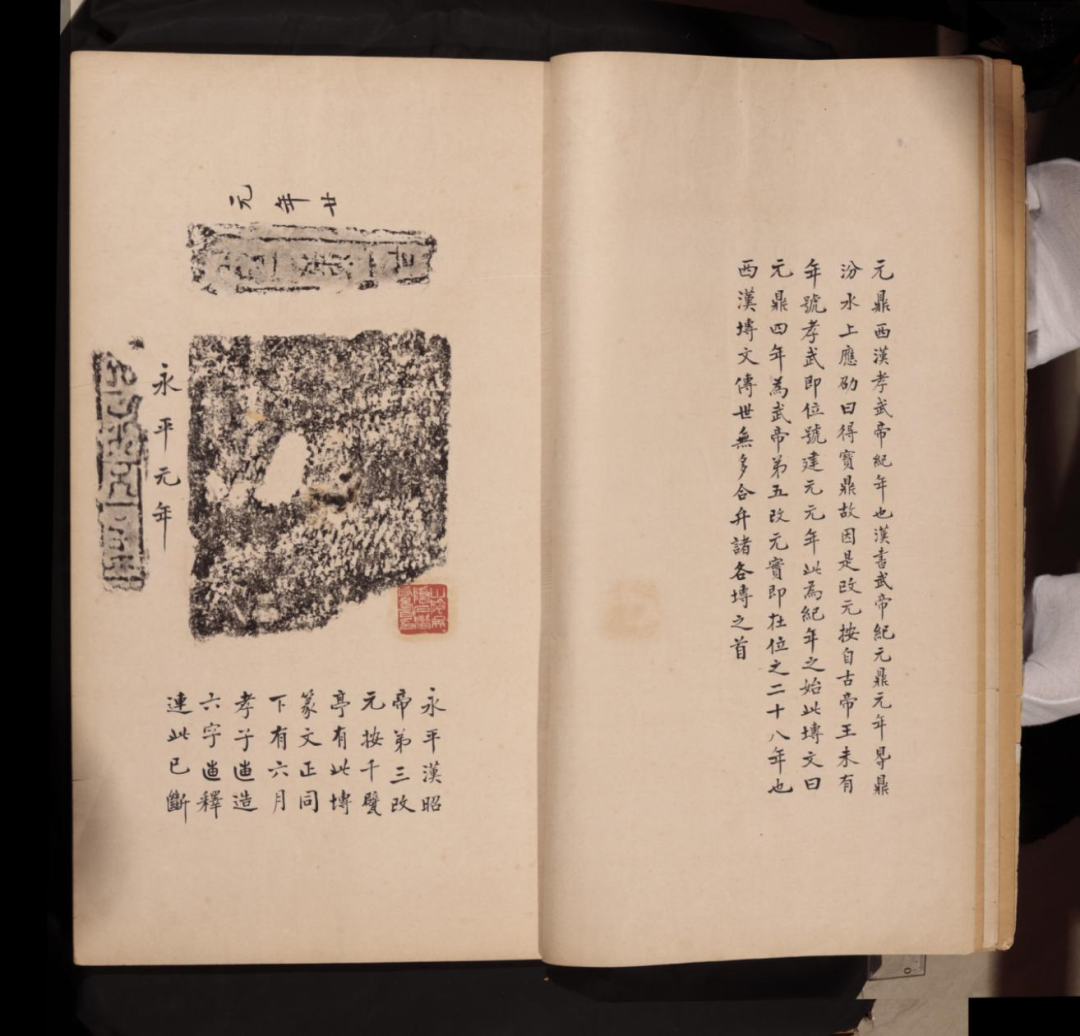 元鼎西漢孝武帝紀年也漢書武帝紀元鼎元年㝵鼎
汾水上應劭曰得寶鼎故因是改元按自古帝王未有
年號孝武即位號建元元年此為紀年之始此塼文曰
元鼎四年為武帝第五改元實即在位之二十八年也
西漢塼文傳世無多合弁諸各塼之首
廿年元
永平元年
永平漢昭
帝第三改
元按千甓
亭有此塼
篆文正同
下有六月
孝子造
六字釋
連此已斷